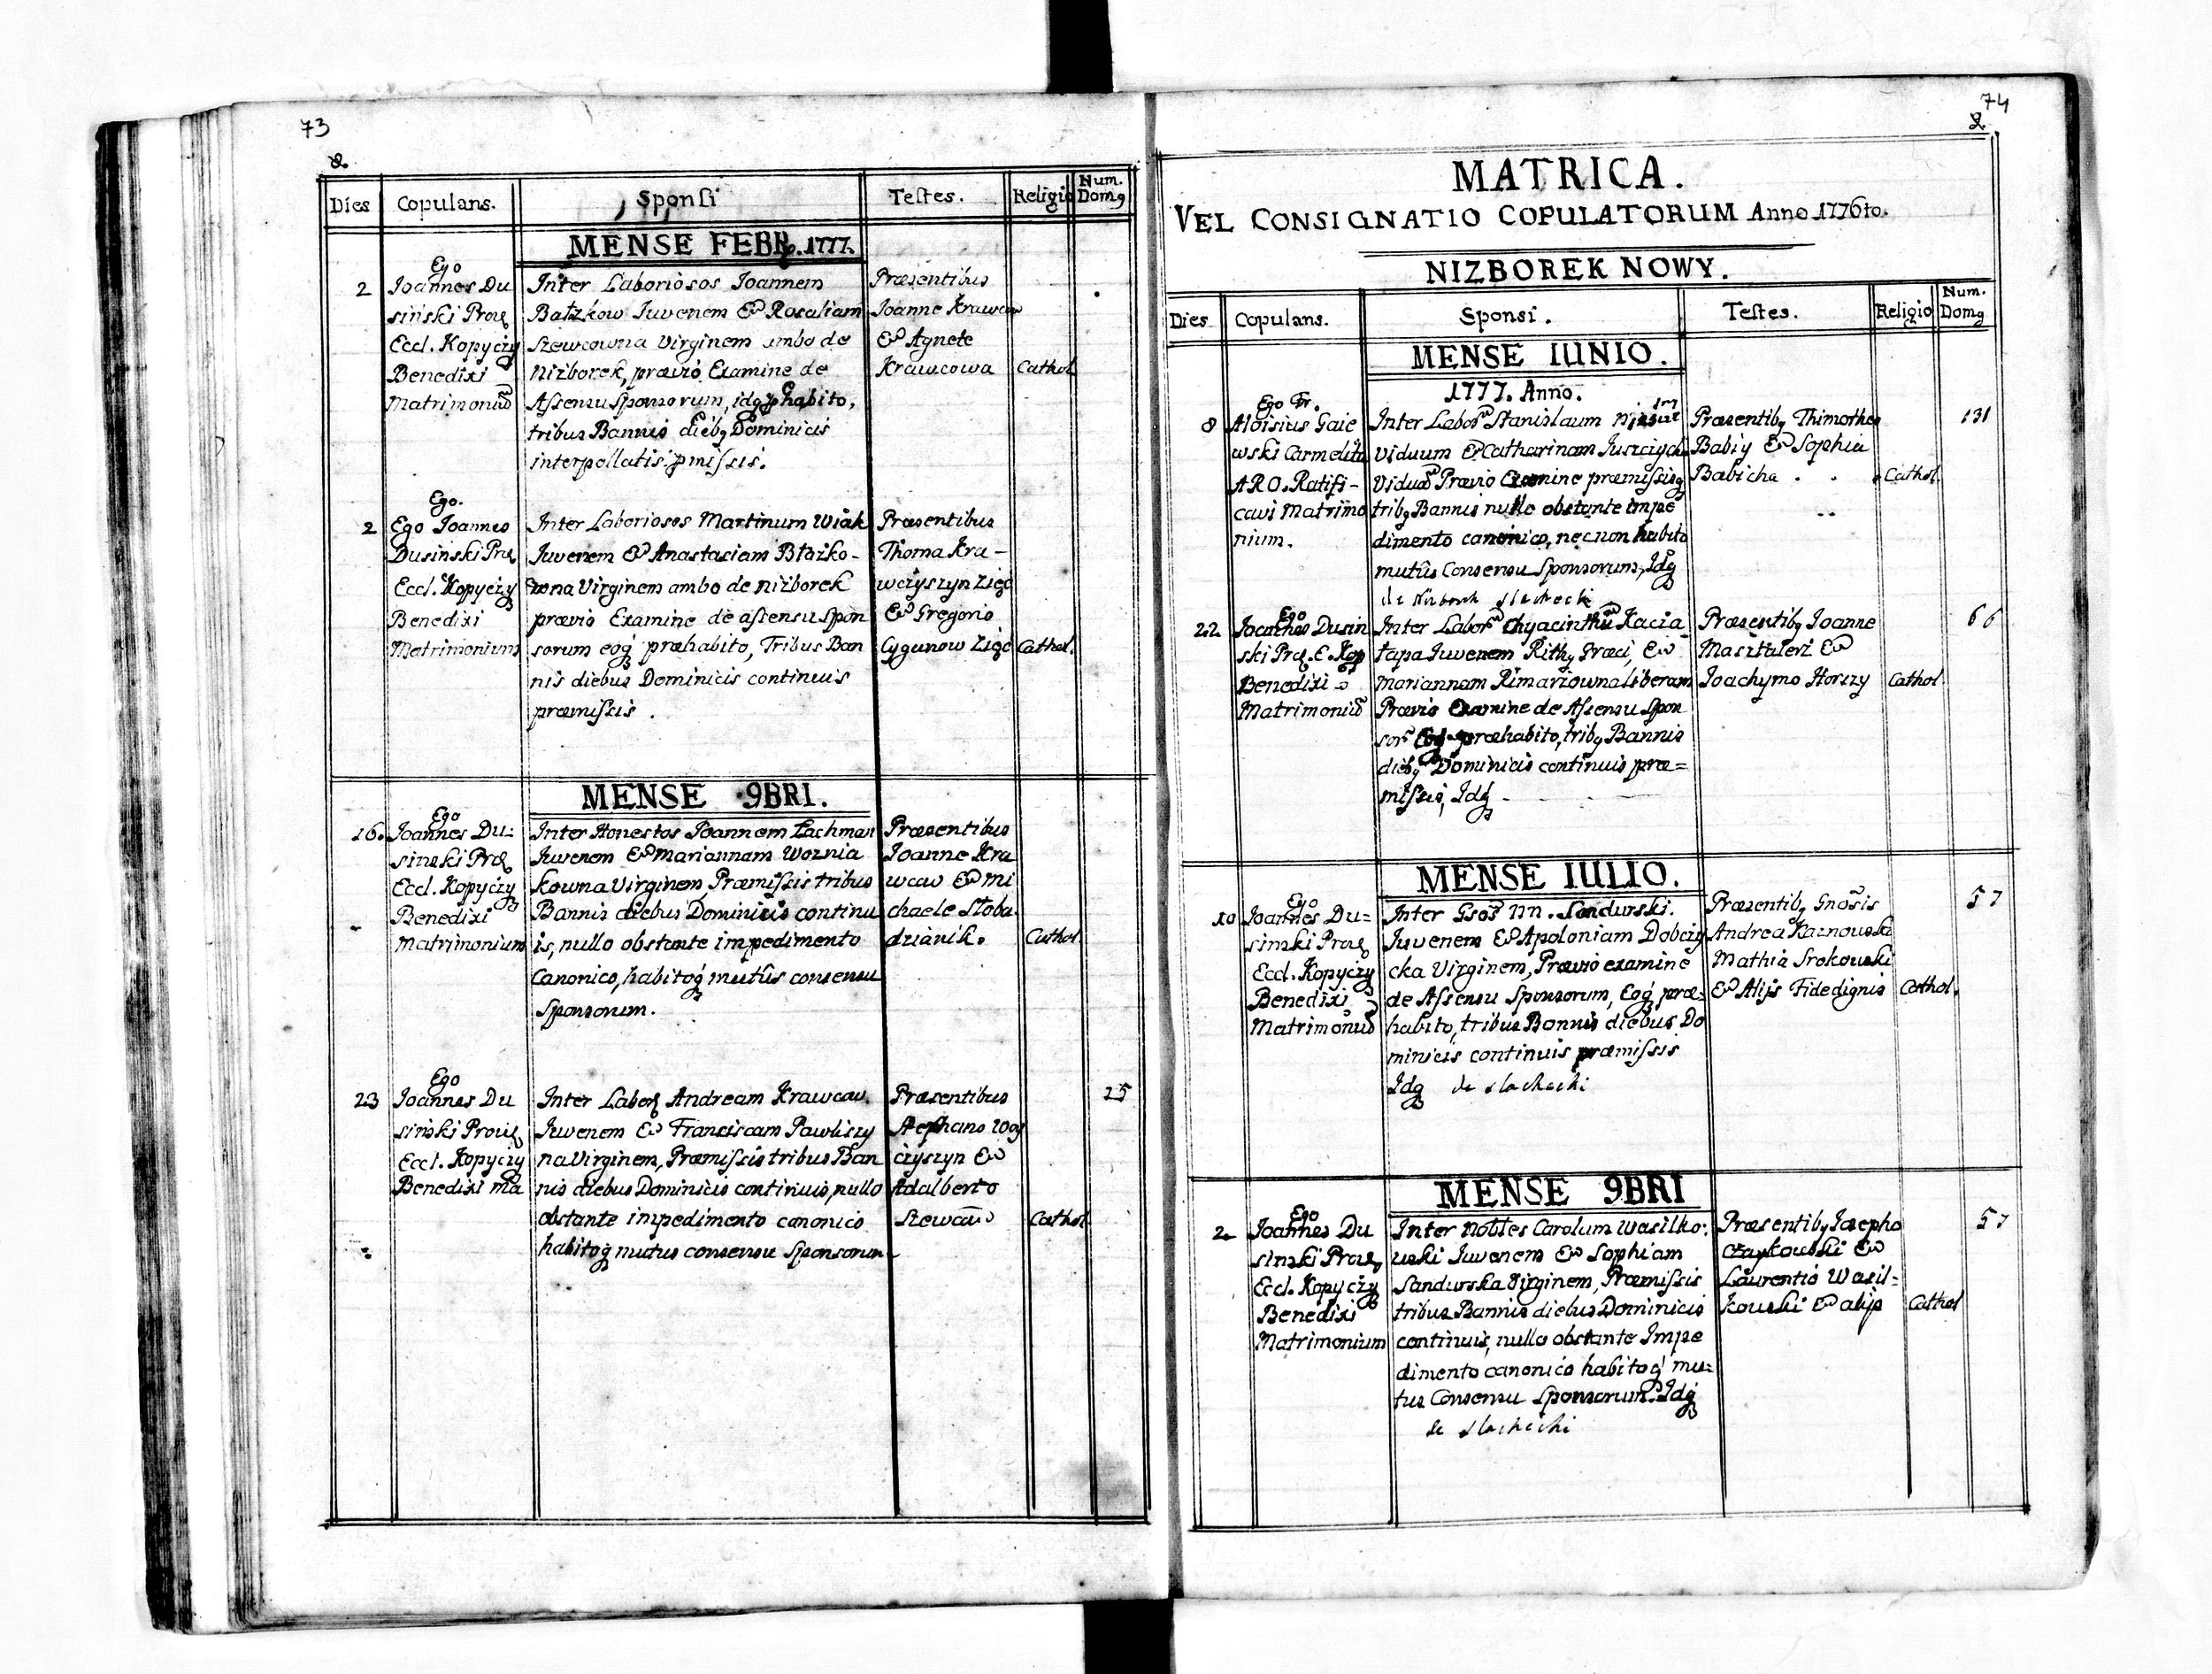 73
&
Dies Copulans. Sponsi Testes. Religio Num. Domq
MENSE FEBR. 1777.
Ego
2 Joannes Du
sinski Præ
Eccl. Kopyczy
Benedixi
Matrimoniũ
Inter Laboriosos Joannem
Batzkow Juvenem & Rosaliam
Szewcowna Virginem ambo de
Nizborek, prævio Examine de
Assensu Sponsorum, idq habito,
tribus Bannis dieb9 Dominicis
interpollatis pmissis.
Præsentibus
Joanne Krawcow
& Agnete
Krawcowa
Cathol
Ego.
2 Ego Joannes
Dusinski Præ
Eccl. Kopyczy
Benedixi
Matrimonium
Inter Laboriosos Martinum Wiak
Juvenem & Anastaciam Błazko-
Virginem ambo de nizborek
prævio Examine de assensu Spon
sorum eoq præhabito, Tribus Ban
nis diebus Dominicis continuis
præmissis.
Præsentibus
Thoma Kra-
wczyszyn Zięc
& Gregorio
Cygunow Zięc
Cathol.
MENSE 9BRI.
Ego
16. Joannes Du:
sinski Præ
Eccl. Kopyczy
Benedixi
Matrimonium
Inter Honestos Joannem Lachman
Juvenem & Mariannam Woznia
kowna Virginem, Præmissis tribus
Bannis diebus Dominicis continu
is, nullo obstante impedimento
Canonico, habitoq mutûs consensu
Sponsorum.
Præsentibus
Joanne Kra
wcaw & Mi
chaele Słoba
dzianik.
Cathol
Ego
23 Joannes Du
sinski Præ
Eccl. Kopyczy
Benedixi Ma
Inter Labor Andream Krawcaw.
Juvenem & Franciscam Pawliszy
na Virginem, Præmissis tribus Ban
nis diebus Dominicis continuis, nullo
obstante impedimento canonico
habitoq mutus consensu Sponsorum
Præsentibus
Stephano Woy
czyszyn &
Adalberto
Szewcaw
Cathol
25
74
2
MATRICA.
VEL CONSIGNATIO COPULATORUM Anno 1776to.
NIZBOREK NOWY.
Dies Copulans. Sponsi. Testes. Religio Num. Domq
MENSE IUNIO.
1777. Anno.
Ego Fr.
8 Aloisius Gaie
wski Carmelita
A R O. Ratifi-
cavi Matrimo
nium.
Inter Labor Stanislaum
viduum & Catharinam
Viduã Prævio Examine præmissisq
trib9 Bannis nullo obstante impe
dimento canonico, necnon habito
mutûs Consensu Sponsorum, Idq
de Nizborek slachecki
Præsentib9 Thimotheo
Babiy & Sophia
Babicha . .
Cathol.
131
Ego
22 Joannes Dusin
ski Præ. E. Kop
Benedixi
Matrimoniũ
Inter Labor Hyacinthũ Kacia
tapa Juvenem Rit9 Græci, &
Mariannam Rimarzowna liberam
Prævio Examine de Assensu Spon
sor Eoq præhabito, trib9 Bannis
dieb9 Dominicis continuis præ=
missis, Idq
Præsentib9 Joanne
Masztalerz &
Joachymo Horczy
Cathol
66
MENSE IULIO.
Ego
10 Joannes Du=
sinski Præ
Eccl. Kopyczy
Benedixi
Matrimoniũ
Inter Gsos nn. Sandurski.
Juvenem & Apoloniam Dobczy
cka Virginem, Prævio examine
de Assensu Sponsorum, Eoq præ=
habito, tribus Bannis diebus Do
minicis continuis præmissis
Idq de slachecki
Præsentib9 Gnosis
Andrea Kaznowski
Mathia Srokowski
& Alijs Fidedignis
Cathol.
57
MENSE 9BRI
Ego
2. Joannes Du
sinski Præ
Eccl. Kopyczy
Benedixi
Matrimonium
Inter Nobles Carolum Wasilko:
wski Juvenem & Sophiam
Sandurska Virginem, Præmissis
tribus Bannis diebus Dominicis
continuis, nullo obstante Impe
dimento canonico habitoq mu=
tus Consensu Sponsorum. Idq
de slachecki
Præsentib9 Josepho
Czaykowski &
Laurentio Wasil=
kowski & alijs
Cathol
57